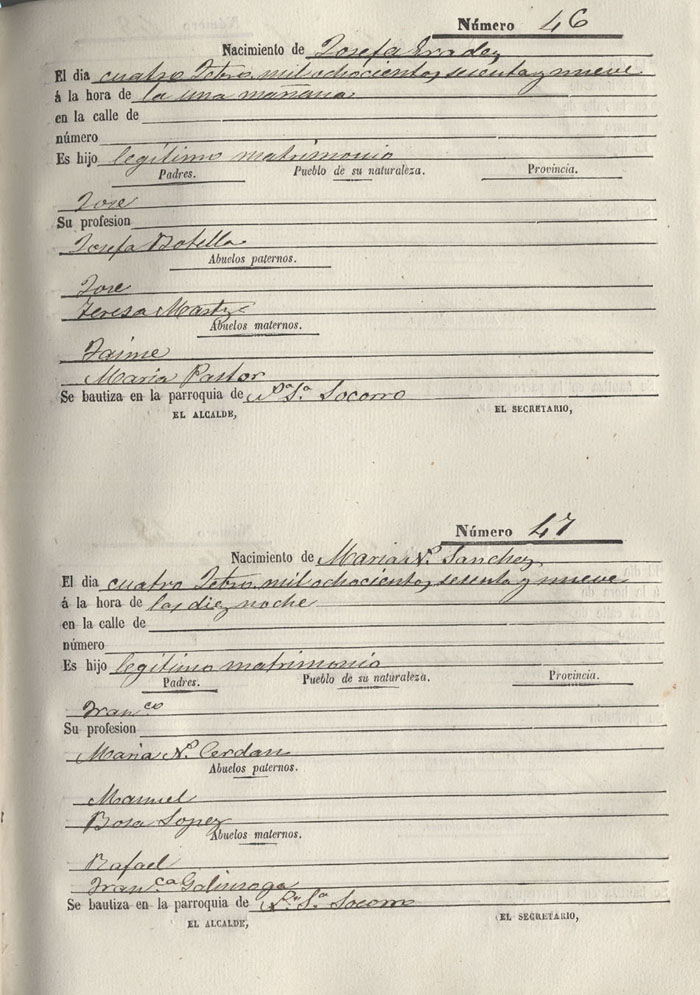 Número 46
Nacimiento de Josefa
El dia cuatro Febro. mil ochocientos sesenta y nueve
á la hora de la una mañana
en la calle de
número
Es hijo legítimo matrimonio
Padres. Pueblo de su naturaleza. Provincia.
Jose
Su profesion
Josefa Botella
Abuelos paternos.
Jose
Teresa Martz.
Abuelos maternos.
Jaime
Maria Pastor
Se bautiza en la parroquia de Nª. Sª. Socorro
EL ALCALDE, EL SECRETARIO,
Número 47
Nacimiento de Maria Nª. Sanchez
El dia cuatro Febro. mil ochocientos sesenta y nueve
á la hora de las diez noche
en la calle de
número
Es hijo legítimo matrimonio
Padres. Pueblo de su naturaleza. Provincia.
Franco
Su profesion
Maria Nª. Cerdan
Abuelos paternos.
Manuel
Rosa Lopez
Abuelos maternos.
Rafael
Franca. Galinsoga
Se bautiza en la parroquia de Nª. Sª. Socorro
EL ALCALDE, EL SECRETARIO,